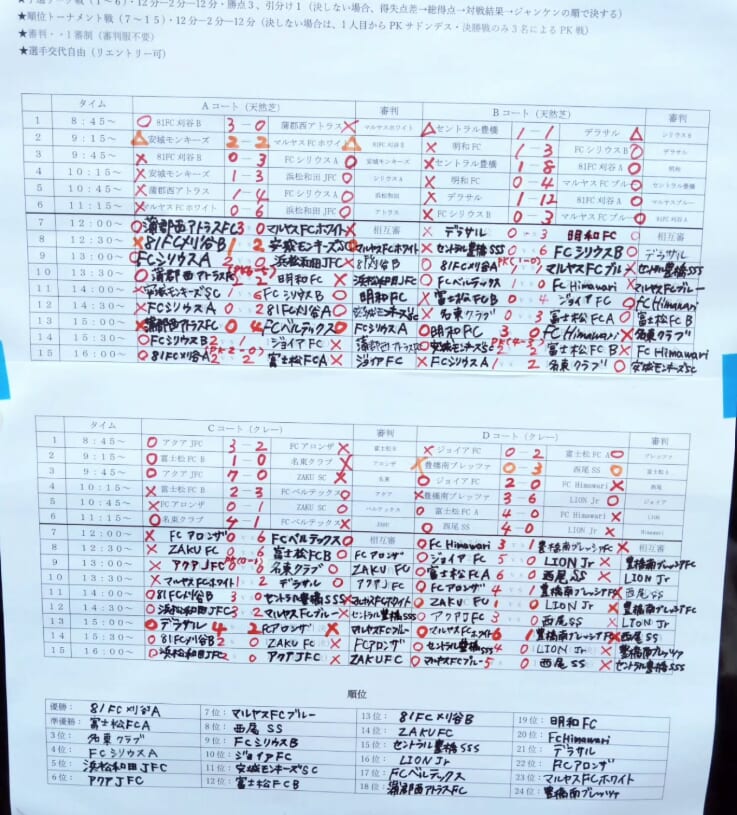 ★順位トーナメント戦（7～15）・12分―2分―12分（決しない場合は、1人目からPKサドンデス・決勝戦のみ3名によるPK戦）
★審判・・1審制（審判服不要）
★選手交代自由（リエントリー可）
タイム Aコート（天然芝） 審判 Bコート（天然芝） 審判
1 8:45～ ○ 81FC刈谷B 3－0 蒲郡西アトラス × マルヤスホワイト △ セントラル豊橋 1－1 デラサル △ シリウスB
2 9:15～ △ 安城モンキーズ 2－2 マルヤスFCホワイト △ 81FC刈谷B × 明和FC 1－3 FCシリウスB ○ デラサル
3 9:45～ × 81FC刈谷B 0－3 FCシリウスA ○ 安城モンキーズ × セントラル豊橋 1－8 81FC刈谷A ○ 明和
4 10:15～ × 安城モンキーズ 1－3 浜松和田JFC ○ シリウスA × 明和FC 0－4 マルヤスFCブルー ○ セントラル豊橋
5 10:45～ × 蒲郡西アトラス 1－4 FCシリウスA ○ 浜松和田 × デラサル 1－12 81FC刈谷A ○ マルヤスブルー
6 11:15～ × マルヤスFCホワイト 0－6 浜松和田JFC ○ アトラス × FCシリウスB 0－3 マルヤスFCブルー ○ 81FC刈谷A
7 12:00～ ○ 蒲郡西アトラスFC 3 0 マルヤスFCホワイト × 相互審 × デラサル 0 3 明和FC ○ 相互審
8 12:30～ × 81FC刈谷B 1 2 安城モンキーズSC ○ マルヤスFCホワイト × セントラル豊橋SSS 0 6 FCシリウスB ○ デラサル
9 13:00～ ○ FCシリウスA 2 0 浜松和田JFC × 81刈谷B ○ 81FC刈谷A PK(1-0) マルヤスFCブルー × セントラル豊橋SSS
10 13:30～ ○ 蒲郡西アトラスFC 2 2 明和FC × 浜松和田JFC ○ FCベルテックス 1 0 FC Himawari × マルヤスFCブルー
11 14:00～ × 安城モンキーズSC 1 6 FCシリウスB ○ 明和FC × 富士松FCB 0 4 ジョイアFC ○ FC Himawari
12 14:30～ × FCシリウスA 0 2 81FC刈谷A ○ 安城モンキーズSC × 名東クラブ 0 3 富士松FCA ○ 富士松FCB
13 15:00～ × 蒲郡西アトラスFC 0 4 FCベルテックス ○ FCシリウスA ○ 明和FC 3 0 FC Himawari × 名東クラブ
14 15:30～ ○ FCシリウスB 2 1 ジョイアFC × 蒲郡西アトラスFC ○ 安城モンキーズSC 2 PK(4-3) 2 富士松FCB × FC Himawari
15 16:00～ ○ 81FC刈谷A 2 PK(2-0) 2 富士松FCA × ジョイアFC × FCシリウスA 1 2 名東クラブ ○ 安城モンキーズSC
タイム Cコート（クレー） 審判 Dコート（クレー） 審判
1 8:45～ ○ アクアJFC 3－2 FCアロンザ × 富士松B × ジョイアFC 0－2 富士松FCA ○ ブレッツァ
2 9:15～ ○ 富士松FCB 1－0 名東クラブ × アロンザ × 豊橋南ブレッツァ 0－3 西尾SS ○ 富士松A
3 9:45～ ○ アクアJFC 7－0 ZAKU SC × 名東 ○ ジョイアFC 2－0 FC Himawari × 西尾
4 10:15～ × 富士松FCB 2－3 FCベルテックス ○ アクア × 豊橋南ブレッツァ 3－6 LION Jr ○ ジョイア
5 10:45～ × FCアロンザ 0－1 ZAKU SC ○ ベルテックス ○ 富士松FCA 4－0 FC Himawari × LION
6 11:15～ ○ 名東クラブ 4－1 FCベルテックス × ZAKU ○ 西尾SS 4－0 LION Jr × Himawari
7 12:00～ × FCアロンザ 0 6 FCベルテックス ○ 相互審 ○ FC Himawari 3 1 豊橋南ブレッシアFC × 相互審
8 12:30～ × ZAKU FC 0 6 富士松FCB ○ FCアロンザ ○ ジョイアFC 5 0 LION Jr × 豊橋南ブレッシアFC
9 13:00～ × アクアJFC 名東クラブ ○ ZAKU FC ○ 富士松FCA 6 0 西尾SS × LION Jr
10 13:30～ × マルヤスFCホワイト 1 2 デラサル ○ アクアJFC ○ FCアロンザ 4 1 豊橋南ブレッシアFC × 西尾SS
11 14:00～ ○ 81FC刈谷B 3 0 セントラル豊橋SSS × マルヤスFCホワイト ○ ZAKU FC 1 0 LION Jr × 豊橋南ブレッシアFC
12 14:30～ ○ 浜松和田JFC 3 2 マルヤスFCブルー × セントラル豊橋SSS ○ アクアJFC 3 0 西尾SS × LION Jr
13 15:00～ ○ デラサル 4 2 FCアロンザ × マルヤスFCブルー ○ マルヤスFCホワイト 6 1 豊橋南ブレッシアFC × 西尾SS
14 15:30～ ○ 81FC刈谷B 2 0 ZAKU FC × FCアロンザ ○ セントラル豊橋SSS 4 0 LION Jr × 豊橋南ブレッツァ
15 16:00～ ○ 浜松和田JFC 2 0 アクアJFC × ZAKU FC ○ マルヤスFCブルー 5 0 西尾SS × セントラル豊橋SSS
順位
優勝： 81FC刈谷A 7位：マルヤスFCブルー 13位：81FC刈谷B 19位：明和FC
準優勝：富士松FCA 8位：西尾SS 14位：ZAKUFC 20位：FCHimawari
3位：名東クラブ 9位：FCシリウスB 15位：セントラル豊橋SSS 21位：デラサル
4位：FCシリウスA 10位：ジョイアFC 16位：LION Jr 22位：FCアロンザ
5位：浜松和田JFC 11位：安城モンキーズSC 17位：FCベルテックス 23位：マルヤスFCホワイト
6位：アクアJFC 12位：富士松FCB 18位：蒲郡西アトラスFC 24位：豊橋南ブレッツァ